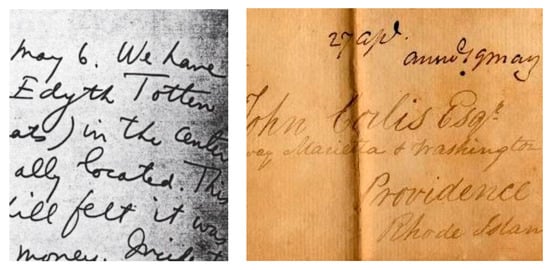 May 6. We have
Edyth Totten
ats) in the center
ally located. This
ill felt it was
money.
27 apl.
John Corlis Esqr.
way Marietta & Washington
Providence
Rhode Islan